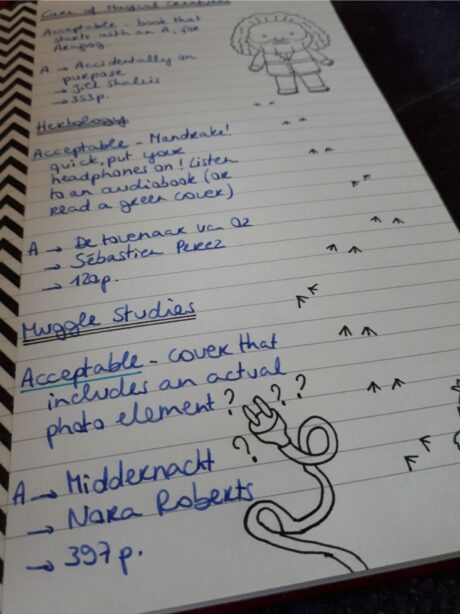 Care of Magical Creatures
Acceptable - book that
starts with an A, for
Aragog.
A → Accidentally on
purpose
→ Jill Shalvis
→ 353 p.
Herbology
Acceptable - Mandrake!
quick, put your
headphones on! Listen
to an audiobook (or
read a green cover)
A → De tovenaar van Oz
→ Sébastien Perez
→ 120p.
Muggle Studies
Acceptable - cover that
includes an actual
photo element? ? ?
?
A → Middernacht
→ Nora Roberts
→ 397 p.